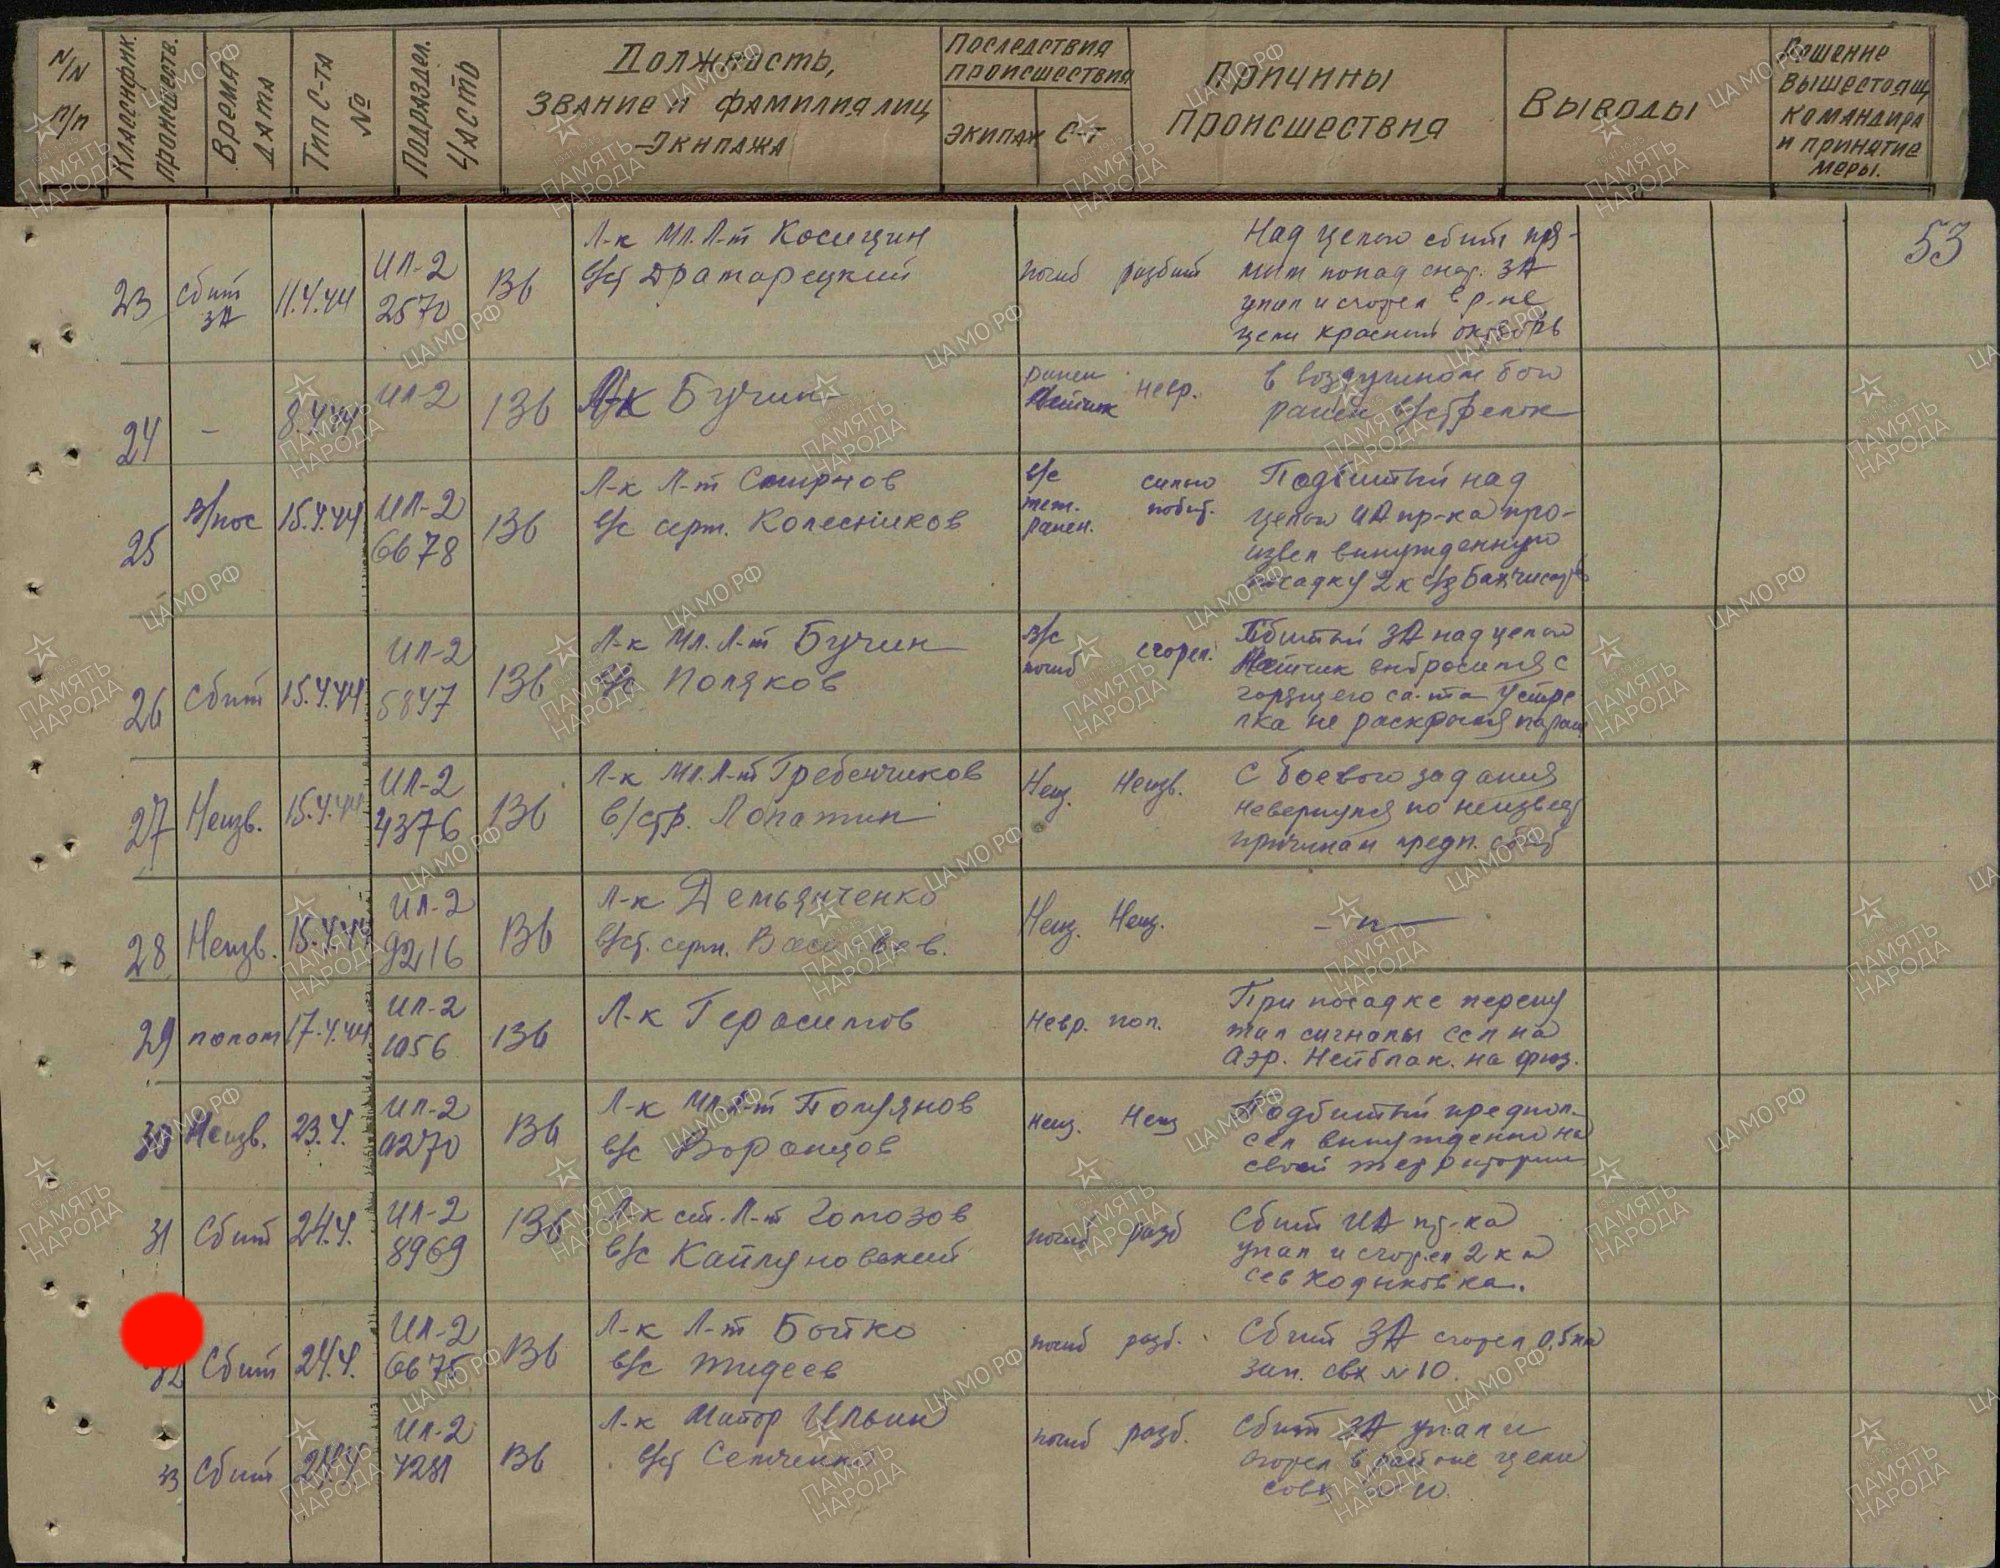 N/N п/п
Классифик. происшеств.
Время дата
Тип с-та №
Подраздел. часть
Должность,
звание и фамилия лиц
экипажа
Последствия
происшествия
экипаж
с-т
Причины
происшествия
Выводы
Решение
вышестоящ
командира
и принятие
меры.
53
23 сбит ЗА 11.4.44 ИЛ-2 2570 136
Л-к Мл. Л-т Косицин
в/ст
погиб разбит
Над целью сбит пря-
мым попад снар. ЗА
упал и сгорел в р-не
цели красный октябрь
24 - 8.4.44 ИЛ-2 136
Л-к Бучин
ранен
невр.
в воздушном бою
ранен в/стрелок
25 в/пос 15.4.44 ИЛ-2 6678 136
Л-к Л-т Смирнов
в/с серж. Колесников
в/с
тяж.
ранен.
сильно
побит.
Подбитый над
целью ИА пр-ка про-
извел вынужденную
посадку 2 к с/з
26 сбит 15.4.44 ИЛ-2 5847 136
Л-к Мл. Л-т Бучин
в/с Поляков
в/с
погиб
сгорел.
ЗА над целью
Летчик выбросился с
горящего са-та У стре
лка не раскрылся параш
27 Неизв. 15.4.44 ИЛ-2 4376 136
Л-к Мл. Л-т Гребенчиков
в/стр. Лопатин
Неиз. Неизв.
С боевого задания
невернулся по неизвест
причинам предп. сбит
28 Неизв. 15.4.44 ИЛ-2 9216 136
Л-к Демьянченко
в/ст. серж. Васильев.
Неиз. Неиз.
—"—
29 полом 17.4.44 ИЛ-2 1056 136
Л-к Герасимов
Невр. пол.
При посадке перепу
тал сигналы сел на
Аэр. на фюз.
30 Неизв. 23.4. ИЛ-2 0270 136
Л-к Мл. Л-т
в/с Воронцов
неиз. Неиз
Подбитый предпол-
сел вынужденно на
своей территории
31 Сбит 24.4. ИЛ-2 8969 136
Л-к ст. Л-т Гомозов
в/с
погиб разб
Сбит ИА пр-ка
упал и сгорел 2 км
сев
32 Сбит 24.4. ИЛ-2 6675 136
Л-к Л-т Бойко
в/с
погиб разб.
Сбит ЗА сгорел 0,5 км
зап. свх №10.
33 Сбит 24.4 ИЛ-2 4281 136
Л-к Майор Ильин
в/ст Семченко
погиб разб.
Сбит ЗА упал и
сгорел в районе цели
ПАМЯТЬ НАРОДА
ЦАМО.РФ